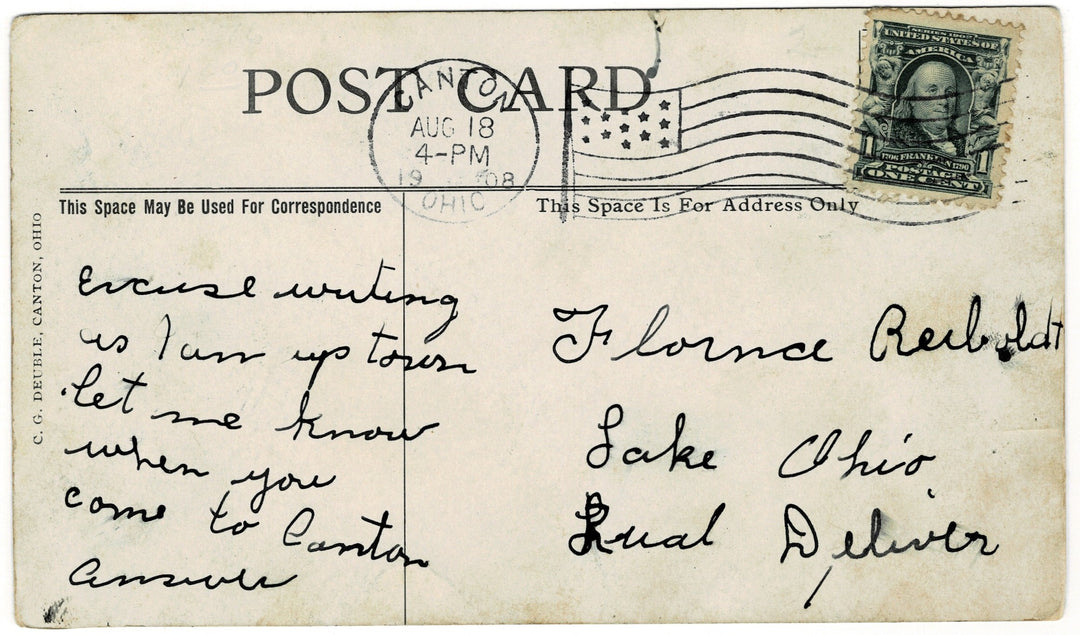 POST CARD
CANTON
AUG 18
4-PM
19 08
OHIO
SERIES 1902
UNITED STATES OF
AMERICA
1706 FRANKLIN 1790
1 1
POSTAGE
ONE CENT
This Space May Be Used For Correspondence
This Space Is For Address Only
C. G. DEUBLE, CANTON, OHIO
Excuse writing
as I am up town
let me know
when you
come to Canton
answer
Flornce Reiboldt
Lake Ohio
Rual Deliver